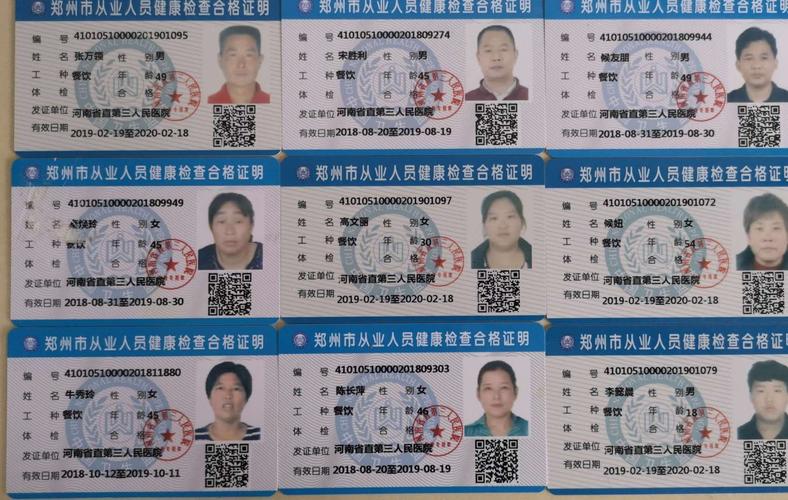 郑州市从业人员健康检查合格证明
编 号 41010510000201901095
姓 名 张万领 性 别 男
工 种 餐饮 年 龄 49
体 检 合 格
发证单位 河南省直第三人民医院
有效日期 2019-02-19至2020-02-18
郑州市从业人员健康检查合格证明
编 号 41010510000201809274
姓 名 宋胜利 性 别 男
工 种 餐饮 年 龄 45
体 检 合 格
发证单位 河南省直第三人民医院
有效日期 2018-08-20至2019-08-19
郑州市从业人员健康检查合格证明
编 号 41010510000201809944
姓 名 候友朋 性 别 男
工 种 餐饮 年 龄 49
体 检 合 格
发证单位 河南省直第三人民医院
有效日期 2018-08-31至2019-08-30
郑州市从业人员健康检查合格证明
编 号 41010510000201809949
姓 名 玲 性 别 女
工 种 餐饮 年 龄 45
体 检 合 格
发证单位 河南省直第三人民医院
有效日期 2018-08-31至2019-08-30
郑州市从业人员健康检查合格证明
编 号 41010510000201901097
姓 名 高文丽 性 别 女
工 种 餐饮 年 龄 30
体 检 合 格
发证单位 河南省直第三人民医院
有效日期 2019-02-19至2020-02-18
郑州市从业人员健康检查合格证明
编 号 41010510000201901072
姓 名 候妞 性 别 女
工 种 餐饮 年 龄 54
体 检 合 格
发证单位 河南省直第三人民医院
有效日期 2019-02-19至2020-02-18
郑州市从业人员健康检查合格证明
编 号 41010510000201811880
姓 名 牛秀玲 性 别 女
工 种 餐饮 年 龄 45
体 检 合 格
发证单位 河南省直第三人民医院
有效日期 2018-10-12至2019-10-11
郑州市从业人员健康检查合格证明
编 号 41010510000201809303
姓 名 陈长萍 性 别 女
工 种 餐饮 年 龄 46
体 检 合 格
发证单位 河南省直第三人民医院
有效日期 2018-08-20至2019-08-19
郑州市从业人员健康检查合格证明
编 号 41010510000201901079
姓 名 李懿晨 性 别 男
工 种 餐饮 年 龄 18
体 检 合 格
发证单位 河南省直第三人民医院
有效日期 2019-02-19至2020-02-18